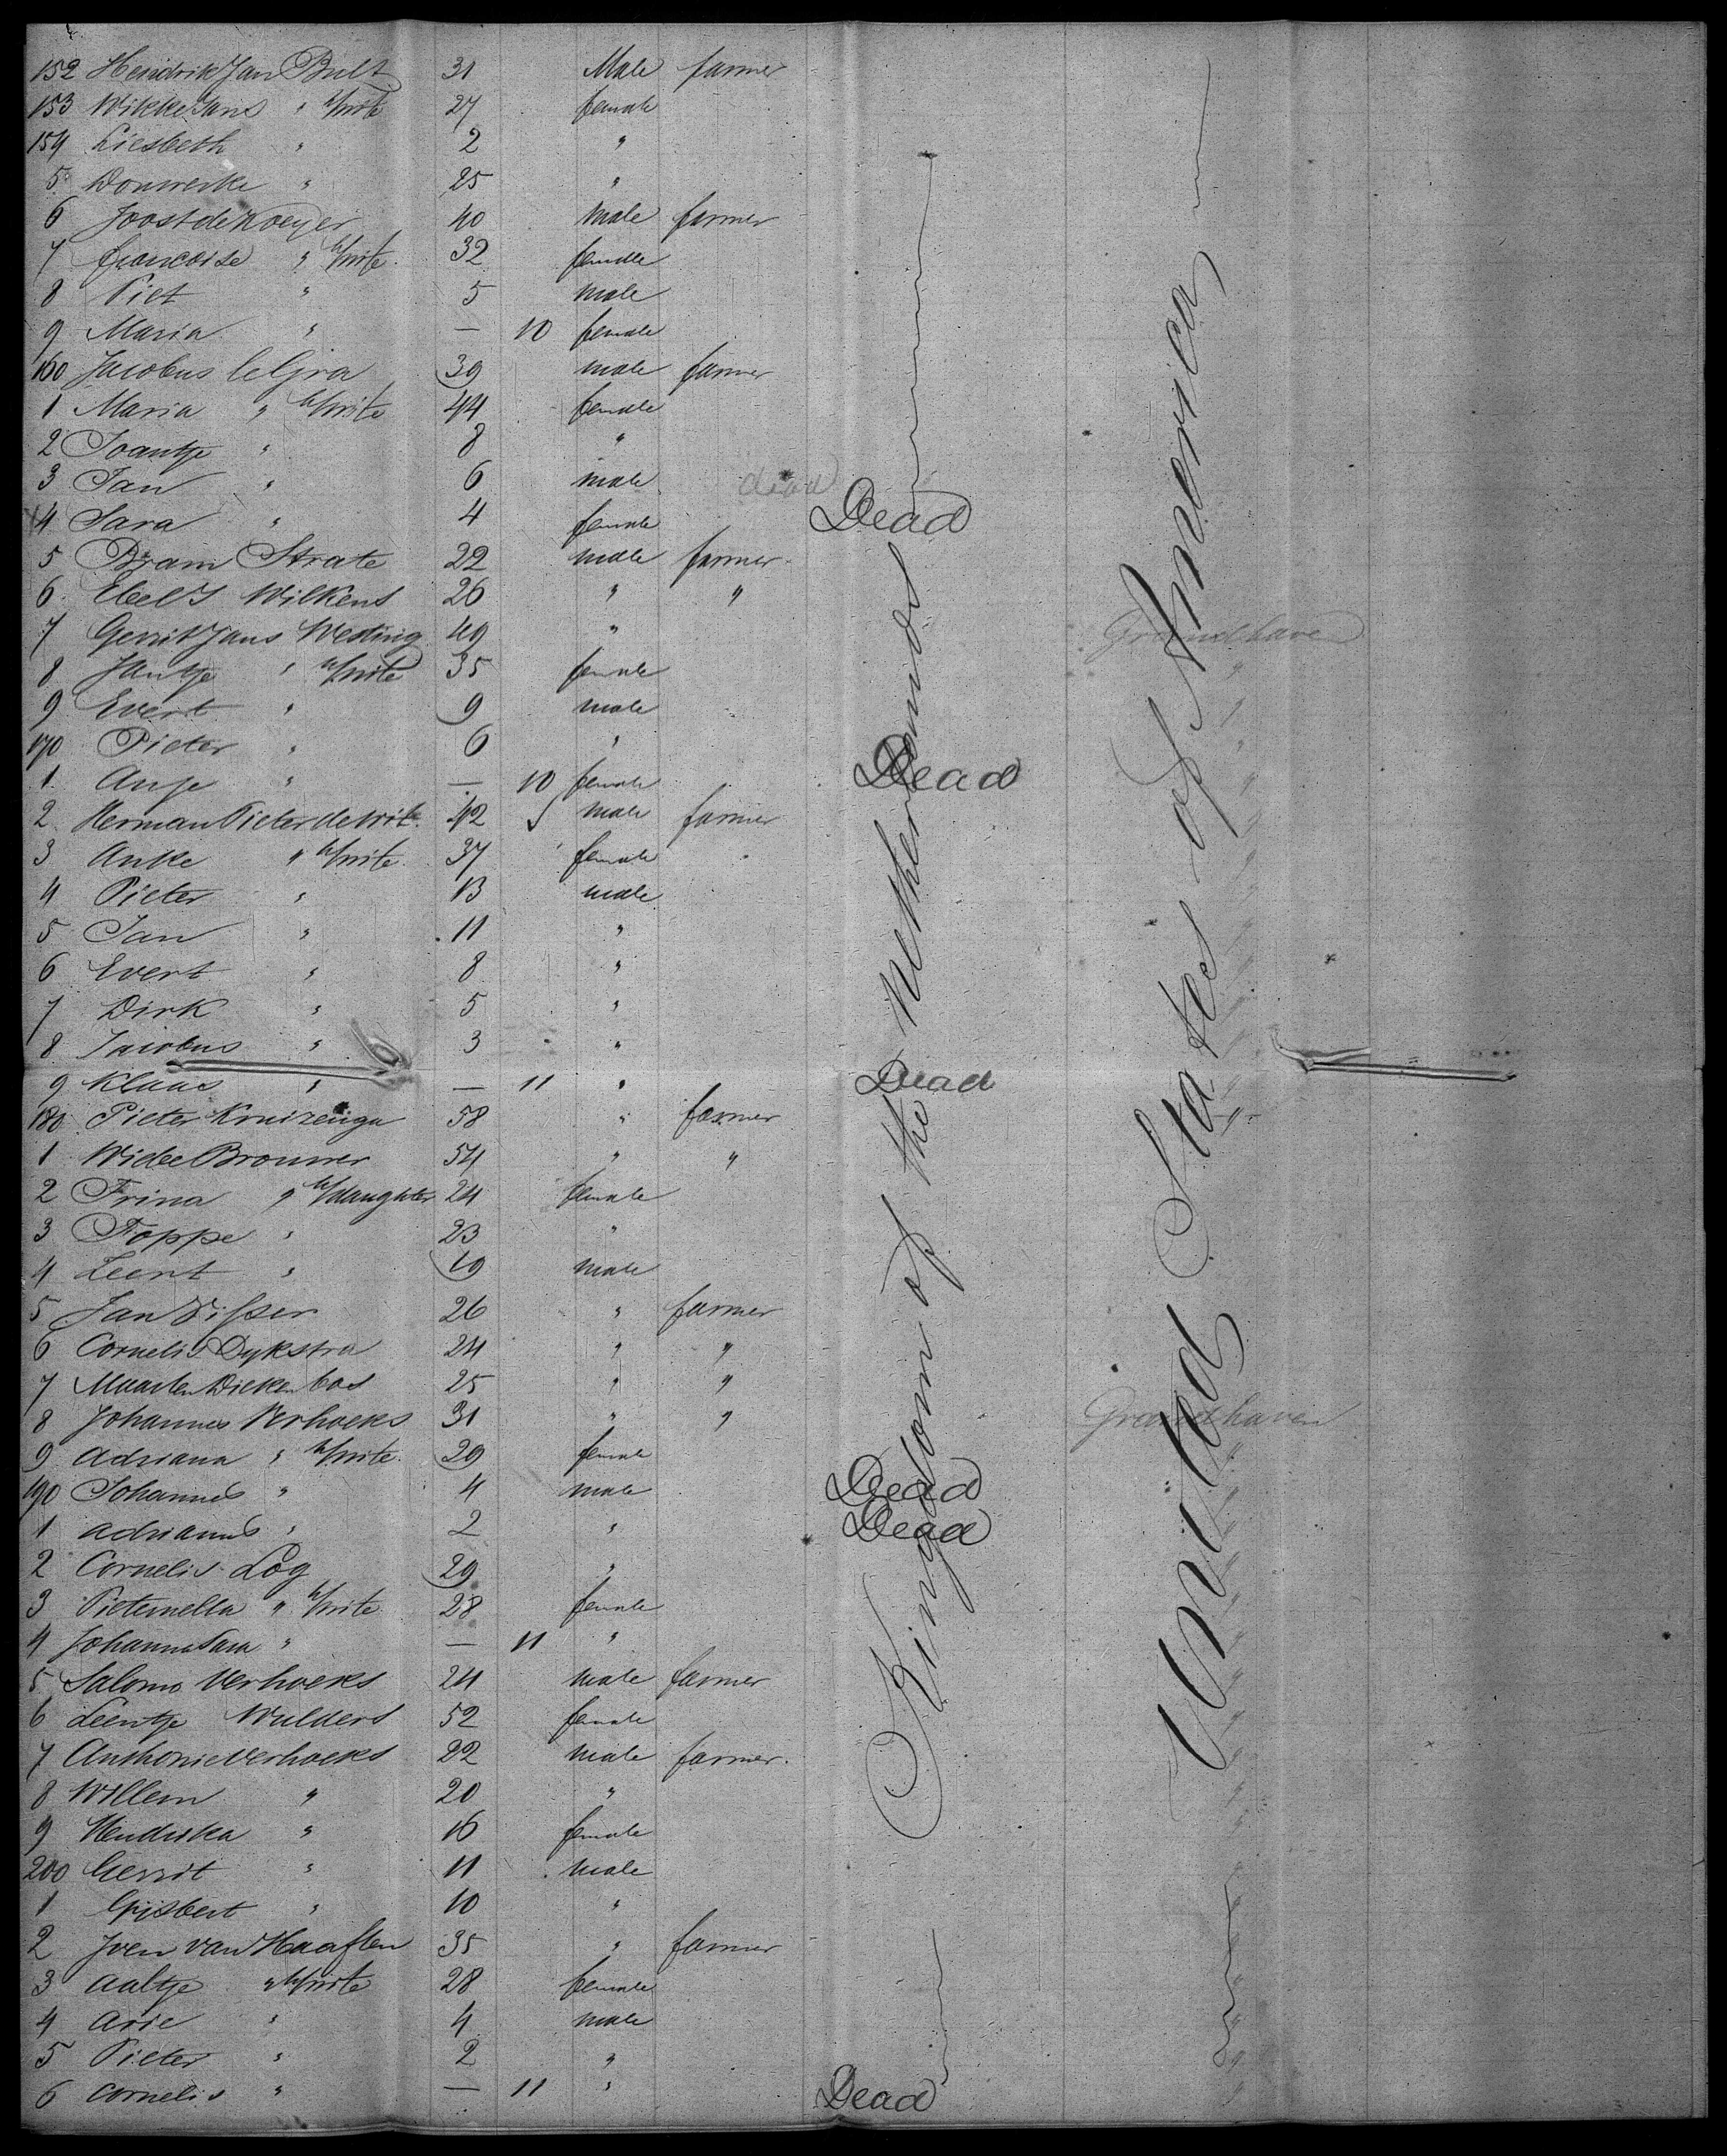 152 Hendrik Jan Bult 31 Male farmer
153 Wikke Jans " h/wife 27 female
154 Liesbeth " 2 "
5 Douwerke " 25 "
6 Joost de Koeyer 40 male farmer
7 francoise " h/wife 32 female
8 Piet " 5 male
9 Maria " — 10 female
160 Jacobus le Gra 39 male farmer
1 Maria " h/wife 44 female
2 Joantje " 8 "
3 Jan " 6 male dead
4 Sara " 4 female Dead
5 Bram Strate 22 male farmer
6 Ebel J Wilkens 26 " "
7 Gerrit Jans Westing 49 " Grandhave
8 Jantje " h/wife 35 female "
9 Evert " 9 male "
170 Pieter " 6 " Dead "
1 Anje " — 10 female "
2 Herman Pieter de Wit 42 male farmer "
3 Anke " h/wife 37 female "
4 Pieter " 13 male "
5 Jan " 11 " "
6 Evert " 8 " "
7 Dirk " 5 " "
8 Jacobus " 3 " "
9 Klaas " — 11 " Dead "
180 Pieter Kruizenga 58 " farmer "
1 Wiebe Brouwer 54 " "
2 Trina " h/daughter 24 female
3 Foppe " 23 "
4 Leent " 19 male
5 Jan Visser 26 " farmer
6 Cornelis Dykstra 24 " "
7 Maarten Dieken bos 25 " "
8 Johannes Verhoeks 31 " " Grandhaven
9 Adriana " h/wife 29 female "
190 Johannes " 4 male Dead "
1 Adrianus " 2 " Dead "
2 Cornelis Log 29 " "
3 Pieternella " h/wife 28 female "
4 Johanna Sara " — 11 " "
5 Salomo Verhoeks 24 male farmer "
6 Leentje Mulders 52 female "
7 Anthonie Verhoeks 22 male farmer "
8 Willem " 20 " "
9 Hendrika " 16 female "
200 Gerrit " 11 male "
1 Gijsbert " 10 " "
2 Jven van Haaften 35 " farmer "
3 Aaltje " h/wife 28 female "
4 Arie " 4 male "
5 Pieter " 2 " "
6 Cornelis " — 11 " Dead "
Kingdom of the Netherlands
United States of America